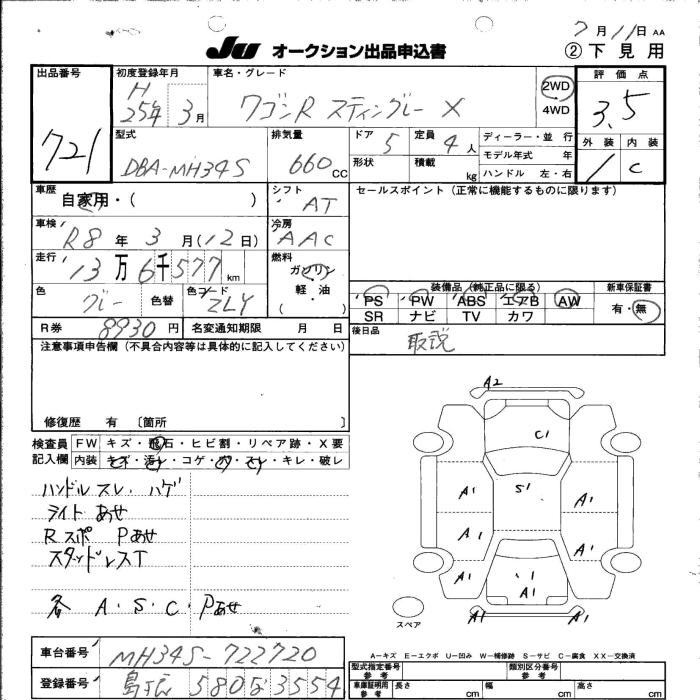 7月11日 AA
JU オークション出品申込書 ② 下見用
出品番号 721
初度登録年月 H 25年 3月
車名・グレード ワゴンR スティングレー X
2WD
4WD
評価点 3.5
外装 内装
1 C
型式 DBA-MH34S
排気量 660 CC
ドア 5
定員 4 人
形状
積載 kg
ディーラー・並行
モデル年式 年
ハンドル 左・右
車歴 自家用・( )
シフト AT
セールスポイント (正常に機能するものに限ります)
車検 R8年 3月(12日)
冷房 AAC
走行 13万6千577 km
燃料 ガソリン
軽・油
( )
色 グレー 色替
色コード ZLY
装備品 (純正品に限る) 新車保証書
PS PW ABS エアB AW
SR ナビ TV カワ
有・無
R券 8930円 名変通知期限 月 日
後日品 取説
注意事項申告欄 (不具合内容等は具体的に記入してください)
修復歴 有 〔箇所 〕
検査員
記入欄
FW キズ・飛石・ヒビ割・リペア跡・X要
内装 キズ・汚れ・コゲ・穴・スレ・キレ・破レ
ハンドルスレ・ハゲ
ライトあせ
Rスポ Pあせ
スタッドレスT
各 A・S・C・Pあせ
A2
C1
A1 S1 A1
A1 A1
A1 1 A1
A1
A1 A1
スペア
A−キズ E−エクボ U−凹み W−補修跡 S−サビ C−腐食 XX−交換済
車台番号 MH34S-722720
登録番号 580 3554
型式指定番号 参考
類別区分番号 参考
車庫証明用 参考
長さ cm 幅 cm 高さ cm